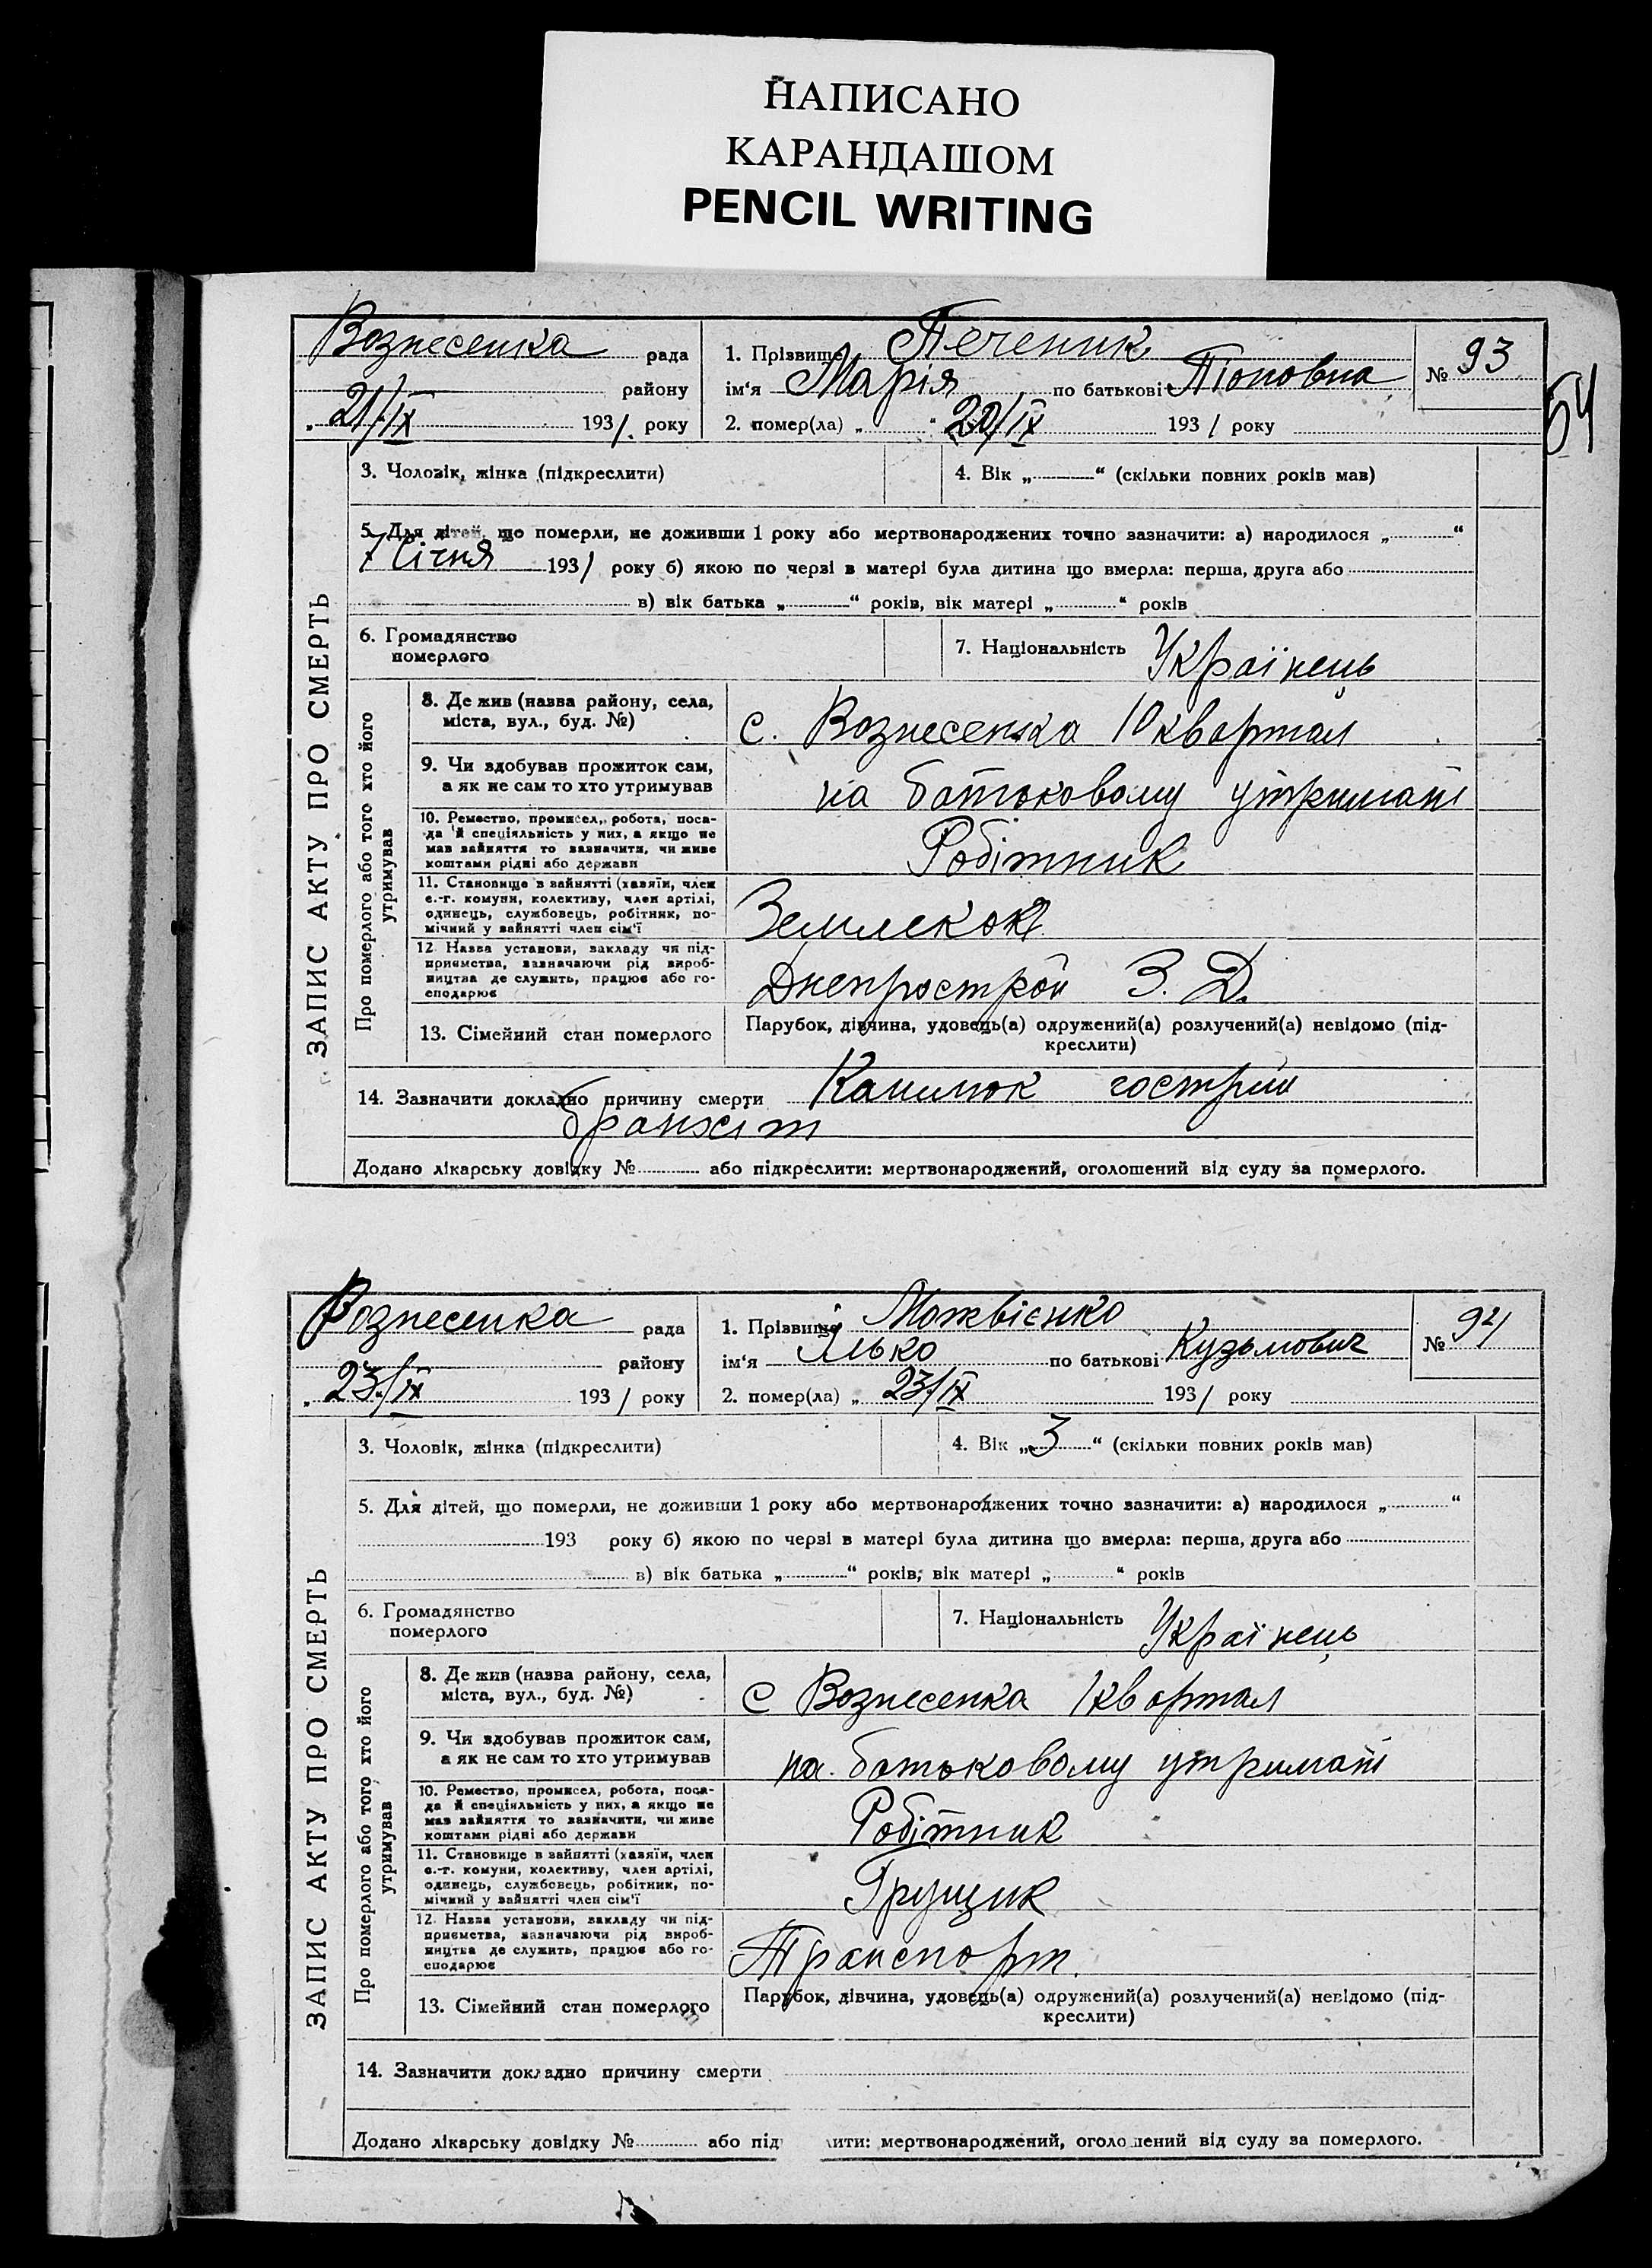 НАПИСАНО
КАРАНДАШОМ
PENCIL WRITING
54
Вознесенка рада
21/IX району
" 1931. року
1. Прізвище Печеник
ім'я Марія по батькові
2. помер(ла) „ " 20/IX 1931 року
№ 93
ЗАПИС АКТУ ПРО СМЕРТЬ
3. Чоловік, жінка (підкреслити)
4. Вік „ “ (скільки повних років мав)
5. Для дітей, що померли, не доживши 1 року або мертвонароджених точно зазначити: а) народилося „ “
7 Січня 1931 року б) якою по черзі в матері була дитина що вмерла: перша, друга або
в) вік батька „ “ років, вік матері „ “ років
6. Громадянство
померлого
7. Національність Українець
Про померлого або того хто його
утримував
8. Де жив (назва району, села,
міста, вул., буд. №)
с. Вознесенка 10 квартал
9. Чи здобував прожиток сам,
а як не сам то хто утримував
на батьковому утримані
10. Ремество, промисел, робота, поса-
да й спеціяльність у них, а якщо не
мав зайняття то зазначити, чи живе
коштами рідні або держави
Робітник
11. Становище в зайнятті (хазяїн, член
с.-г. комуни, колективу, член артілі,
одинець, службовець, робітник, по-
мічний у зайнятті член сім'ї
Землекоп
12. Назва установи, закладу чи під-
приємства, зазначаючи рід вироб-
ництва де служить, працює або го-
сподарює
Днепрострой З. Д.
13. Сімейний стан померлого
Парубок, дівчина, удовець(а) одружений(а) розлучений(а) невідомо (під-
креслити)
14. Зазначити докладно причину смерти гострий
бранхит
Додано лікарську довідку № або підкреслити: мертвонароджений, оголошений від суду за померлого.
Вознесенка рада
району
„ 23/IX 1931 року
1. Прізвище Матвієнко
ім'я Ілько по батькові Кузьмович
2. помер(ла) „ 23/IX 1931 року
№ 94
ЗАПИС АКТУ ПРО СМЕРТЬ
3. Чоловік, жінка (підкреслити)
4. Вік „ 3 “ (скільки повних років мав)
5. Для дітей, що померли, не доживши 1 року або мертвонароджених точно зазначити: а) народилося „ “
193 року б) якою по черзі в матері була дитина що вмерла: перша, друга або
в) вік батька „ “ років, вік матері „ “ років
6. Громадянство
померлого
7. Національність Українець
Про померлого або того хто його
утримував
8. Де жив (назва району, села,
міста, вул., буд. №)
с Вознесенка 1 квартал
9. Чи здобував прожиток сам,
а як не сам то хто утримував
на батьковому утримані
10. Ремество, промисел, робота, поса-
да й спеціяльність у них, а якщо не
мав зайняття то зазначити, чи живе
коштами рідні або держави
Робітник
11. Становище в зайнятті (хазяїн, член
с.-г. комуни, колективу, член артілі,
одинець, службовець, робітник, по-
мічний у зайнятті член сім'ї
Грущик
12. Назва установи, закладу чи під-
приємства, зазначаючи рід вироб-
ництва де служить, працює або го-
сподарює
Транспорт.
13. Сімейний стан померлого
Парубок, дівчина, удовець(а) одружений(а) розлучений(а) невідомо (під-
креслити)
14. Зазначити докладно причину смерти
Додано лікарську довідку № або під лити: мертвонароджений, оголошений від суду за померлого.